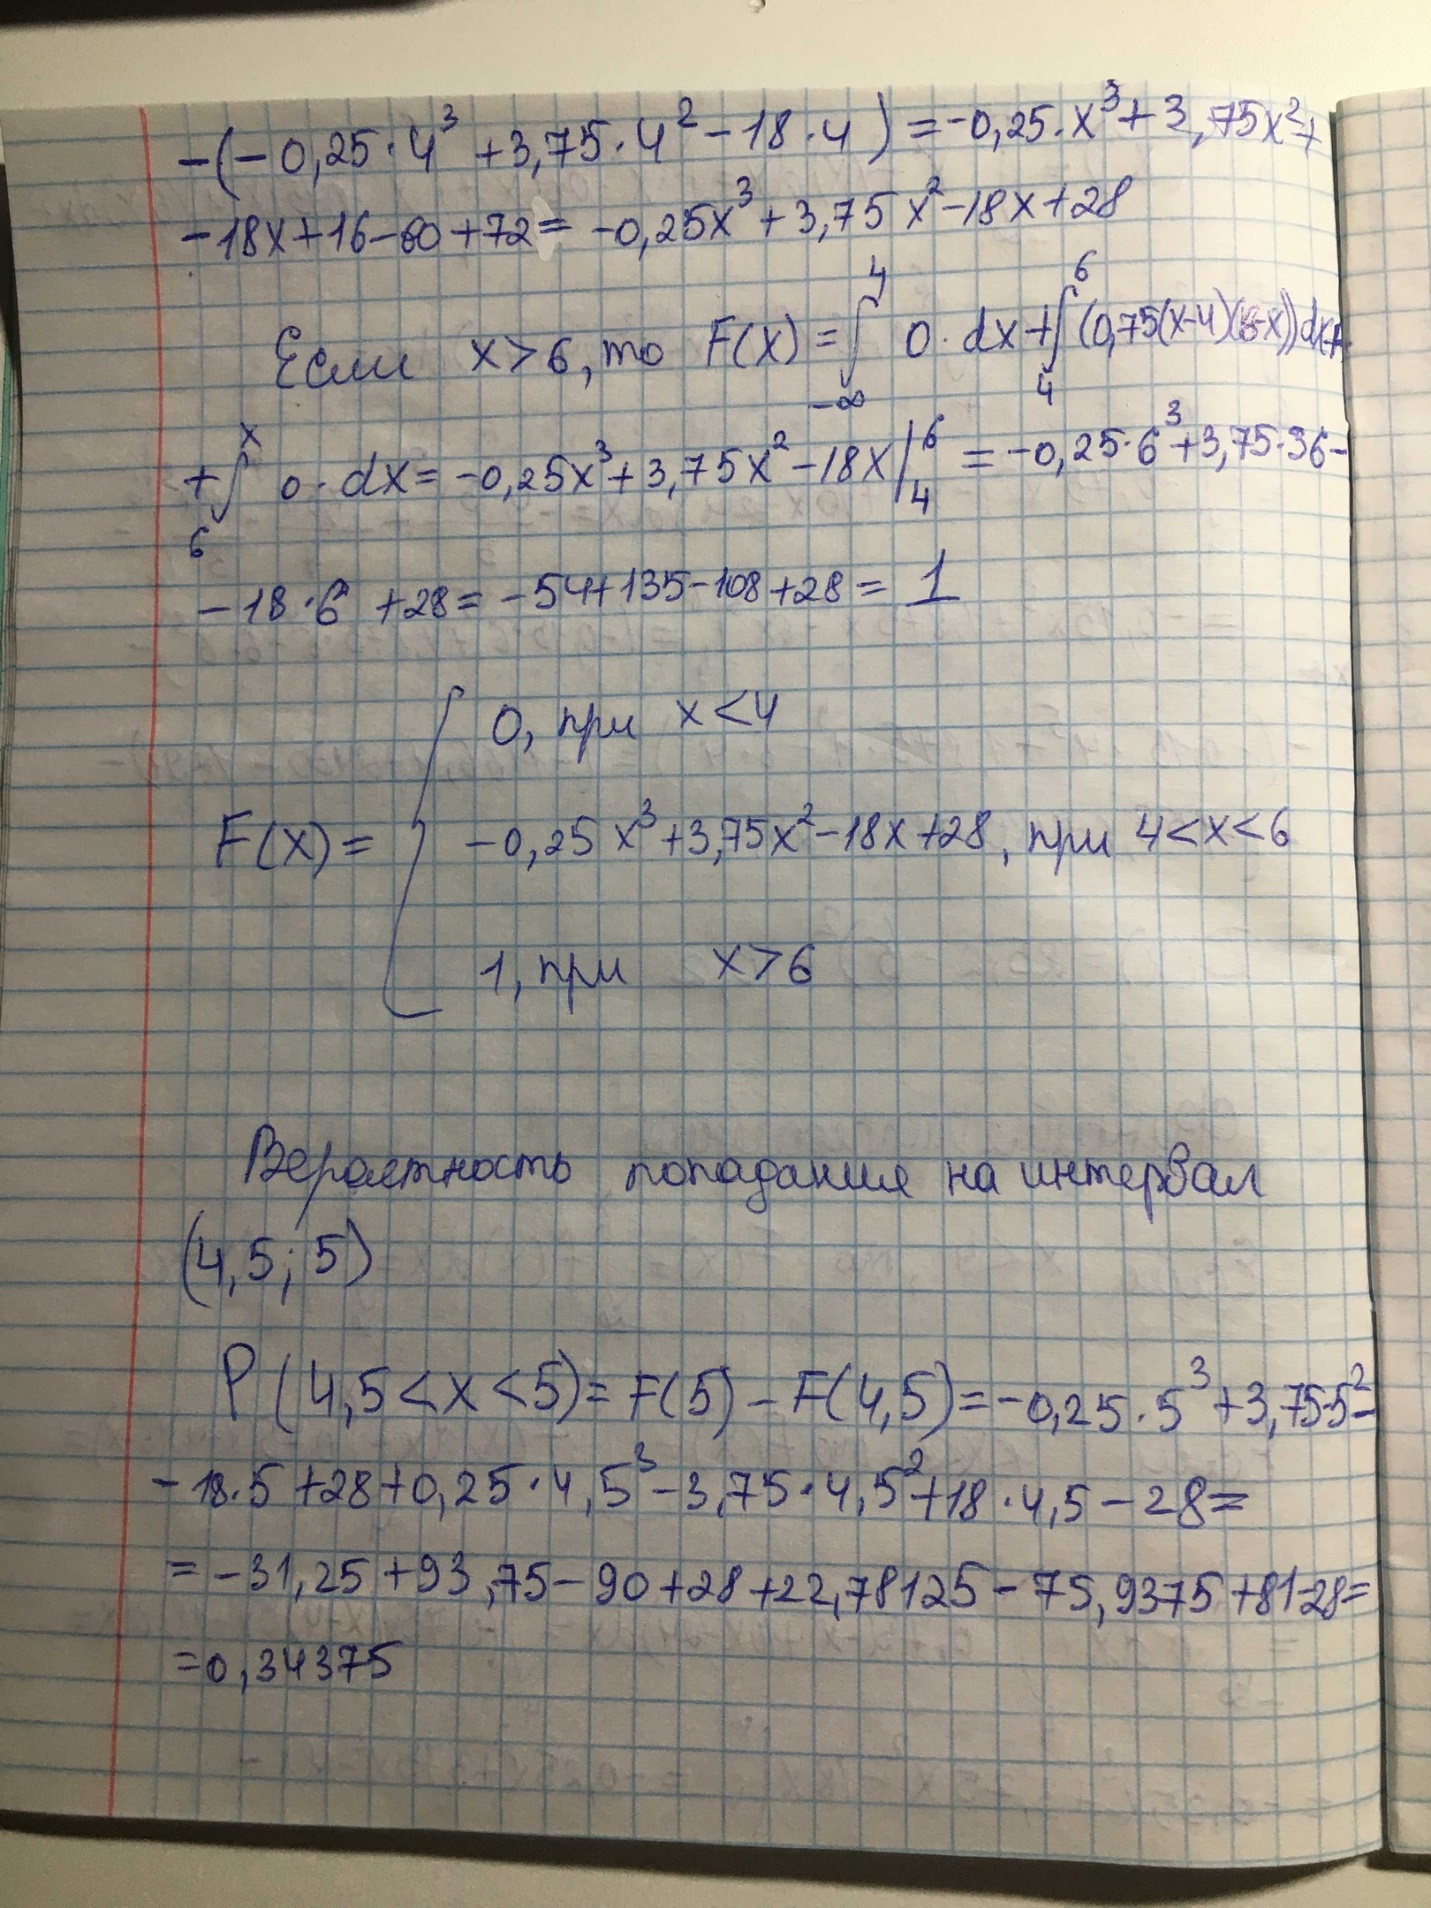 -(-0,25·4³ +3,75·4² -18·4) = -0,25·x³+3,75x²+
-18x+16-60+72= -0,25x³+3,75x²-18x+28
Если x>6, то F(x) = ∫₋∞⁴ 0·dx+∫₄⁶ (0,75(x-4)(6-x))dx+
+∫₆ˣ 0·dx= -0,25x³+3,75x²-18x|₄⁶ = -0,25·6³+3,75·36-
-18·6 +28= -54+135-108+28= 1
0, при x<4
F(x)= { -0,25x³+3,75x²-18x+28, при 4<x<6
1, при x>6
Вероятность попадания на интервал
(4,5; 5)
P(4,5<x<5)= F(5)-F(4,5)= -0,25·5³+3,75·5²-
-18·5+28+0,25·4,5³-3,75·4,5²+18·4,5-28=
= -31,25+93,75-90+28+22,78125-75,9375+81-28=
=0,34375